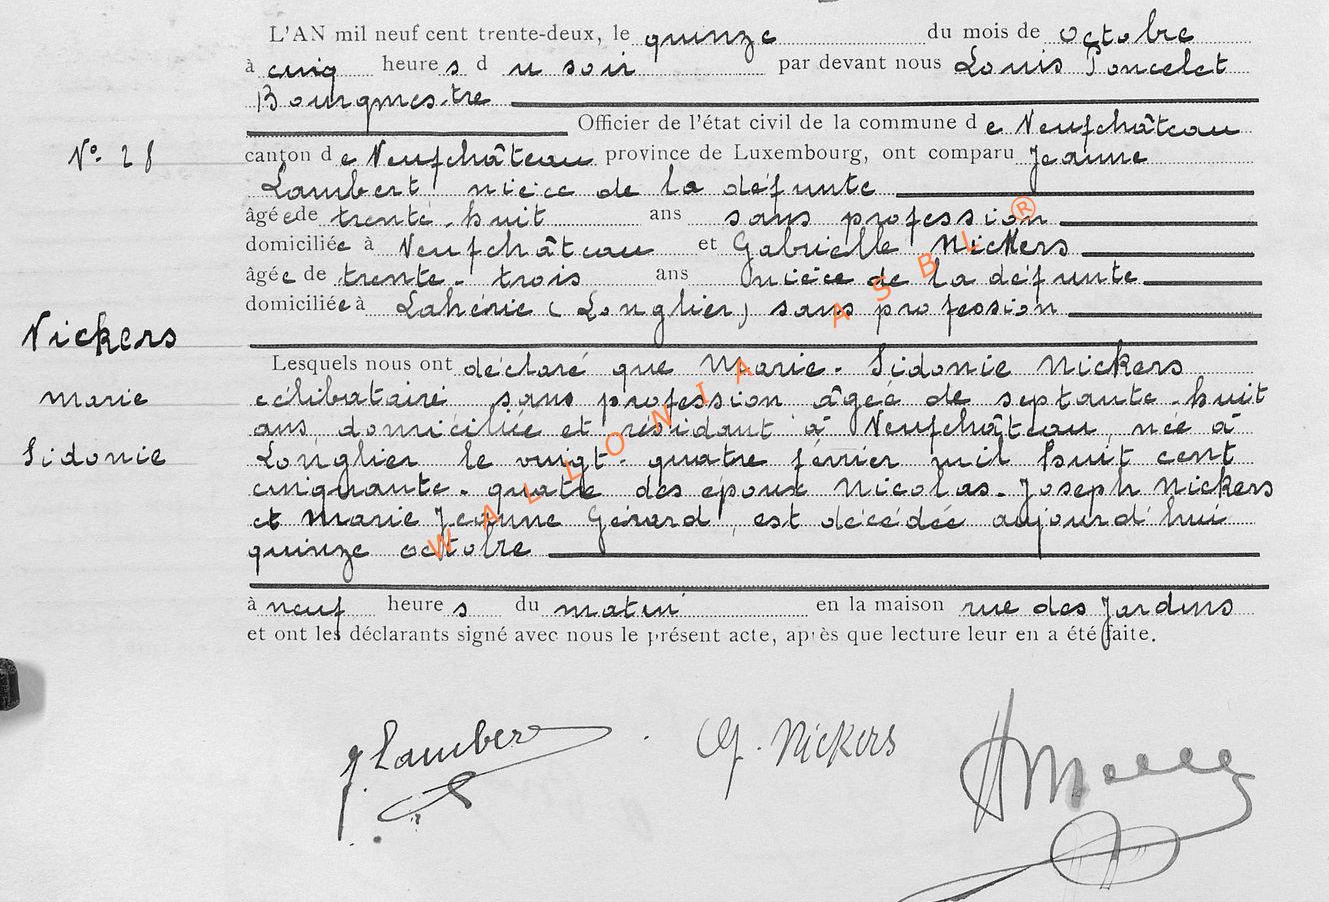 L'AN mil neuf cent trente-deux, le quinze du mois de octobre
à cinq heures du soir par devant nous Louis Poncelet
Bourgmestre
Officier de l'état civil de la commune de Neufchâteau
N° 28
canton de Neufchâteau province de Luxembourg, ont comparu Jeanne
Lambert nièce de la défunte
âgée de trente-huit ans sans profession
domiciliée à Neufchâteau et Gabrielle Nickers
âgée de trente-trois ans nièce de la défunte
domiciliée à Lahérie (Longlier) sans profession
Nickers
Marie
Sidonie
Lesquels nous ont déclaré que Marie-Sidonie Nickers
célibataire sans profession âgée de septante-huit
ans, domiciliée et résidant à Neufchâteau, née à
Longlier le vingt-quatre février mil huit cent
cinquante-quatre des époux Nicolas-Joseph Nickers
et Marie Jeanne Gérard, est décédée aujourd'hui
quinze octobre
à neuf heures du matin en la maison rue des Jardins
et ont les déclarants signé avec nous le présent acte, après que lecture leur en a été faite.
J Lambert G. Nickers
WALLONIA ASBL ®